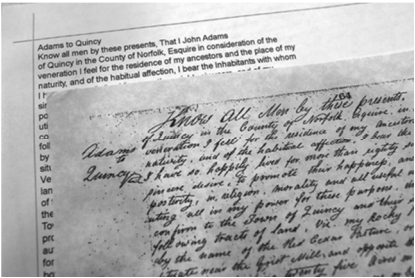 Adams to Quincy
Know all men by these presents, That I John Adams
of Quincy in the County of Norfolk, Esquire in consideration of the
veneration I feel for the residence of my ancestors and the place of my
nativity, and of the habitual affection, I bear the Inhabitants with whom
164
Know All Men by these presents,
Adams
to
Quincy
of Quincy in the County of Norfolk, Esquire, in
veneration I feel for the residence of my ancestors
nativity, and of the habitual affection I bear the
I have so happily lived for more than eighty
sincere desire, to promote their happiness, and
posterity, in religion, morality and all useful
all in my power for these purposes,
confirm to the Town of Quincy and their
following tracts of land, Viz. my Rocky
by the name of the Red Cedar Pasture, or
situate near the Grist Mill, and opposite
twenty five Acres